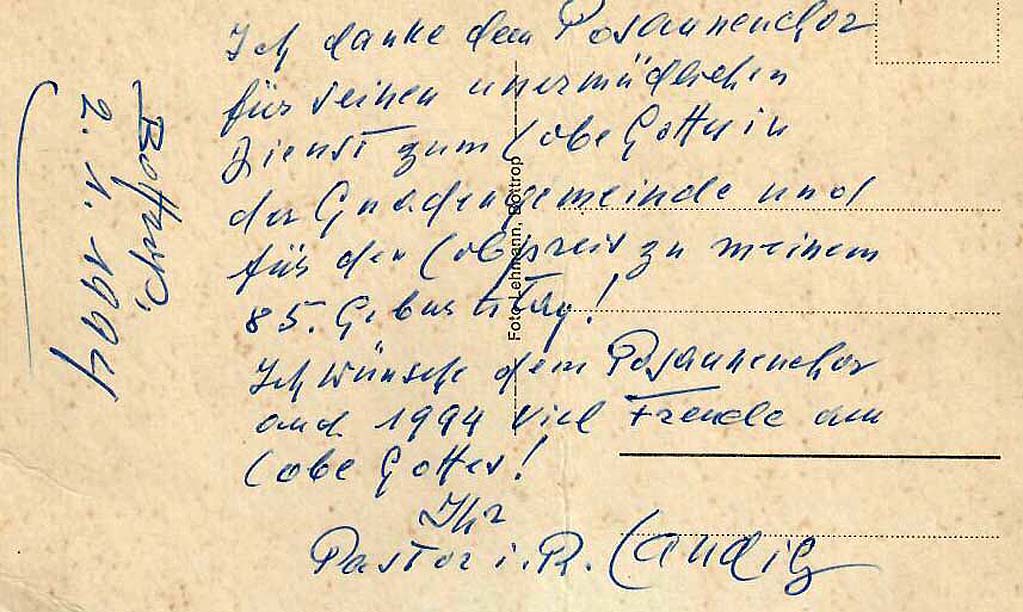 Bottrop,
2. 1. 1994
Ich danke dem Posaunenchor
für seinen unermüdlichen
Dienst zum Lobe Gottes in
der Gnadengemeinde und
für den Lobpreis zu meinem
85. Geburtstag!
Ich wünsche dem Posaunenchor
auch 1994 viel Freude am
Lobe Gottes!
Ihr
Pastor i. R. Landig
Foto Lehmann, Bottrop